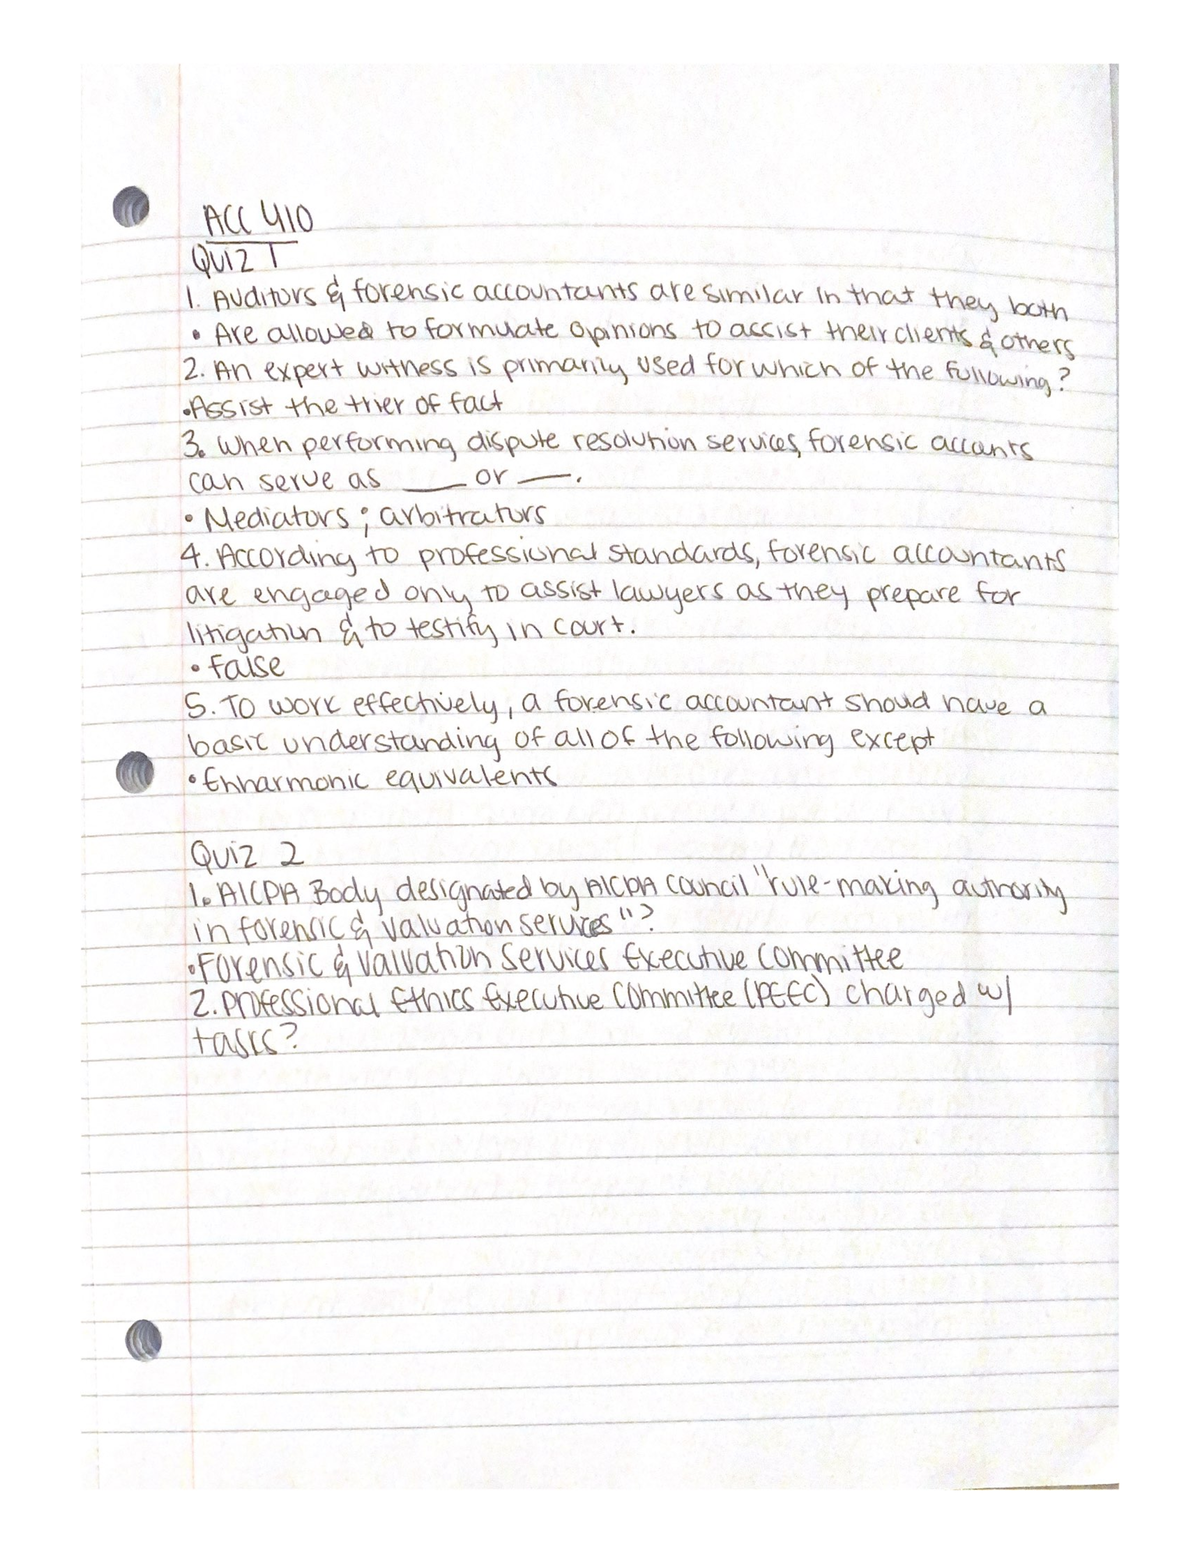 ACC 410
Quiz 1
1. Auditors & forensic accountants are similar in that they both
• Are allowed to formulate opinions to assist their clients & others
2. An expert witness is primarily used for which of the following?
• Assist the trier of fact
3. When performing dispute resolution services, forensic accants
can serve as ___ or ___.
• Mediators ; arbitrators
4. According to professional standards, forensic accountants
are engaged only to assist lawyers as they prepare for
litigation & to testify in court.
• False
5. To work effectively, a forensic accountant should have a
basic understanding of all of the following except
• Enharmonic equivalents
Quiz 2
1. AICPA Body designated by AICPA Council "rule-making authority
in forensic & valuation services"?
• Forensic & Valuation Services Executive Committee
2. Professional Ethics Executive Committee (PEEC) charged w/
tasks?